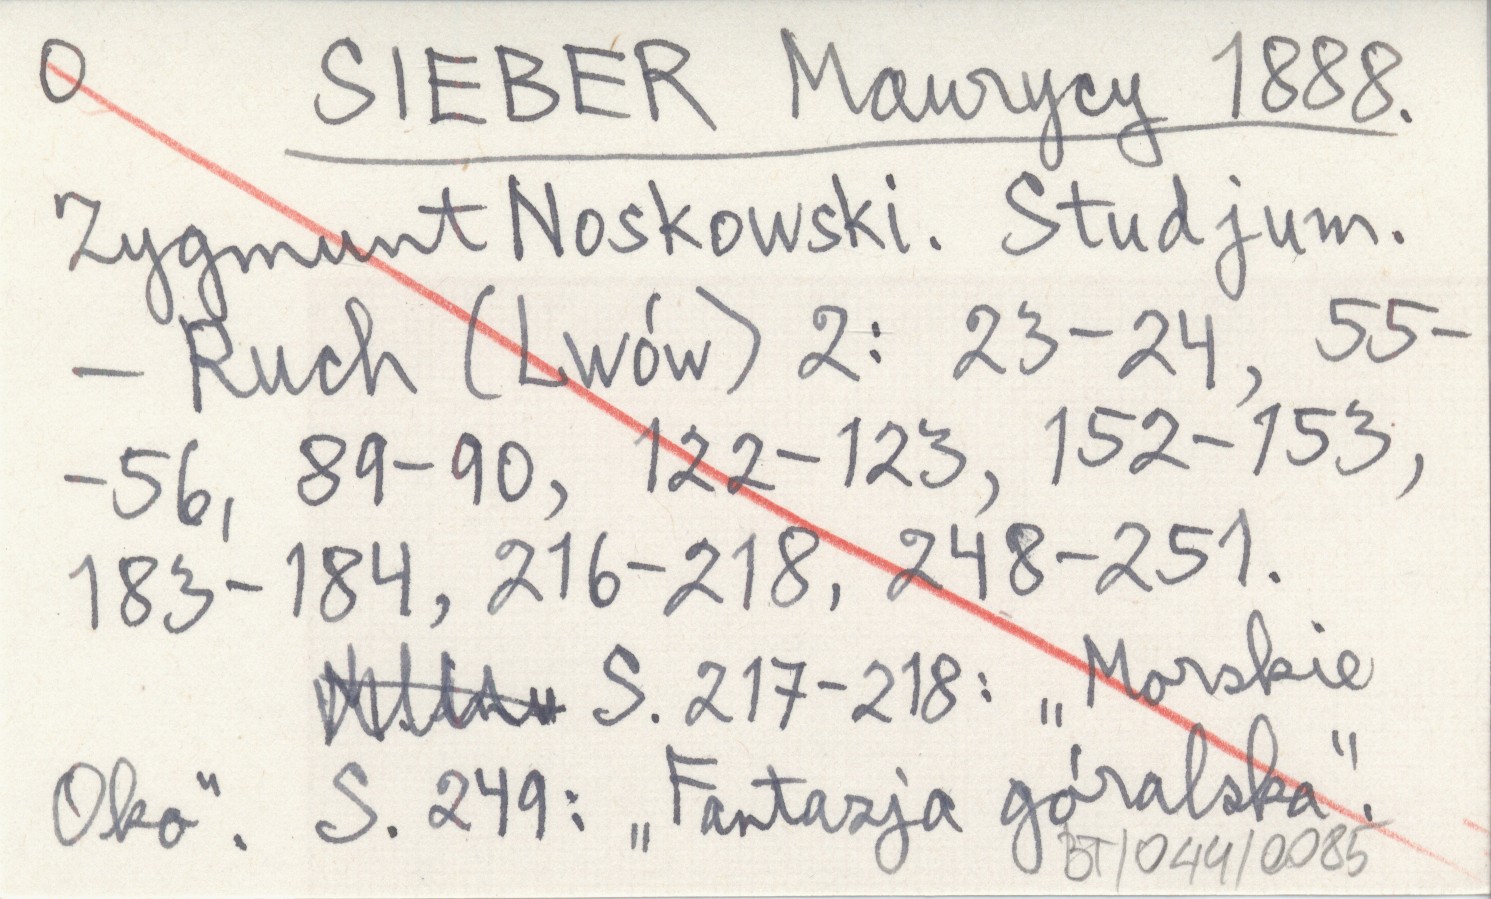 O SIEBER Maurycy 1888.
Zygmunt Noskowski. Studjum.
— Ruch (Lwów) 2: 23-24, 55-
-56, 89-90, 122-123, 152-153,
183-184, 216-218, 248-251.
S. 217-218: „Morskie
Oko". S. 249: „Fantazja góralska".
BT/044/0085